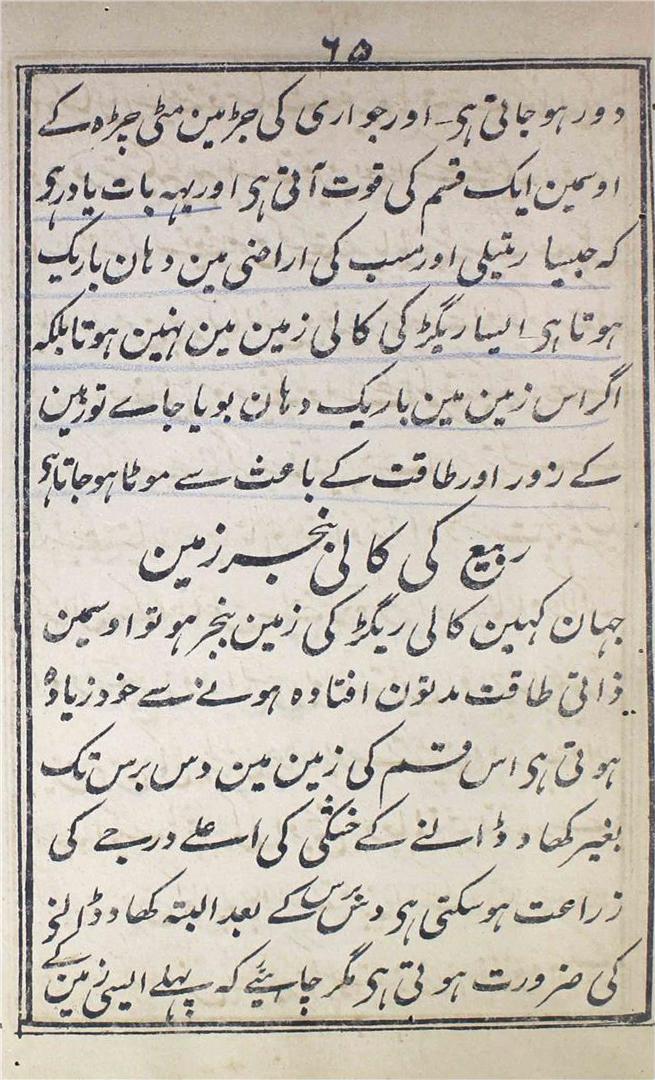 ٦٥
دور ہو جاتی ہی ۔ اور جواری کی جڑ مین مٹی چڑہ کے
اوسمین ایک قسم کی قوت آتی ہی اور یہہ بات یاد رہی
کہ جیسا ریتیلی اور مسب کی اراضی مین دہان باریک
ہوتا ہی ۔ ایسا ریگڑ کی کالی زمین مین نہین ہوتا بلکہ
اگر اس زمین مین باریک دہان بویا جاے تو زمین
کے زور اور طاقت کے باعث سے موٹا ہو جاتا ہی
ربیع کی کالی بنجر زمین
جہان کہین کالی ریگڑ کی زمین بنجر ہو تو اوسمین
ذاتی طاقت مدتون افتادہ ہونے سے خود زیادہ
ہوتی ہی اس قسم کی زمین مین دس برس تک
بغیر کھاد ڈالنے کے خشکی کی اعلے درجے کی
زراعت ہو سکتی ہی دس برس کے بعد البتہ کھاد ڈالنے
کی ضرورت ہوتی ہی مگر چاہیئے کہ پہلے ایسی زمین کے